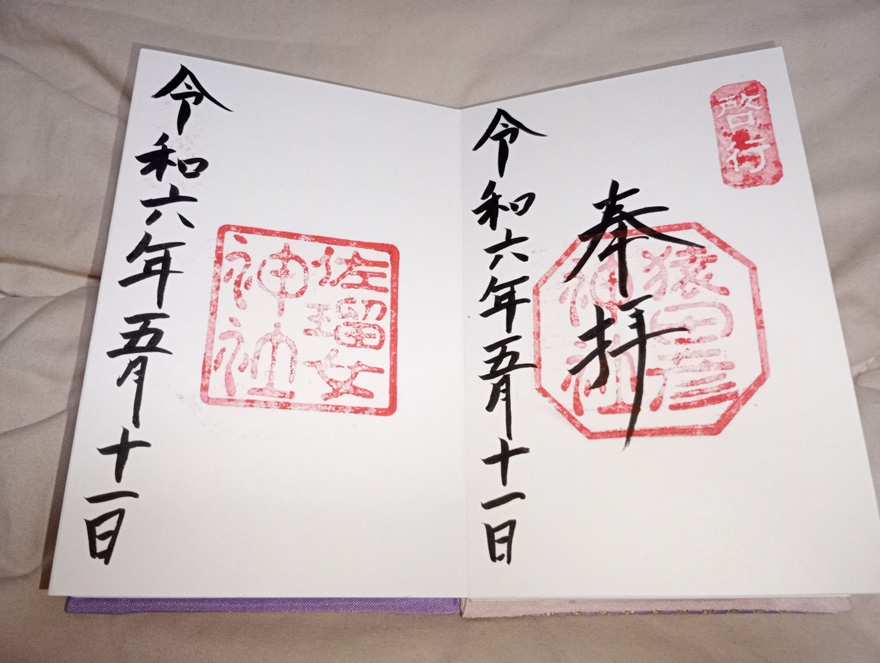 啓行
奉拝
猿田彦
神社
令和六年五月十一日
佐瑠女
神社
令和六年五月十一日